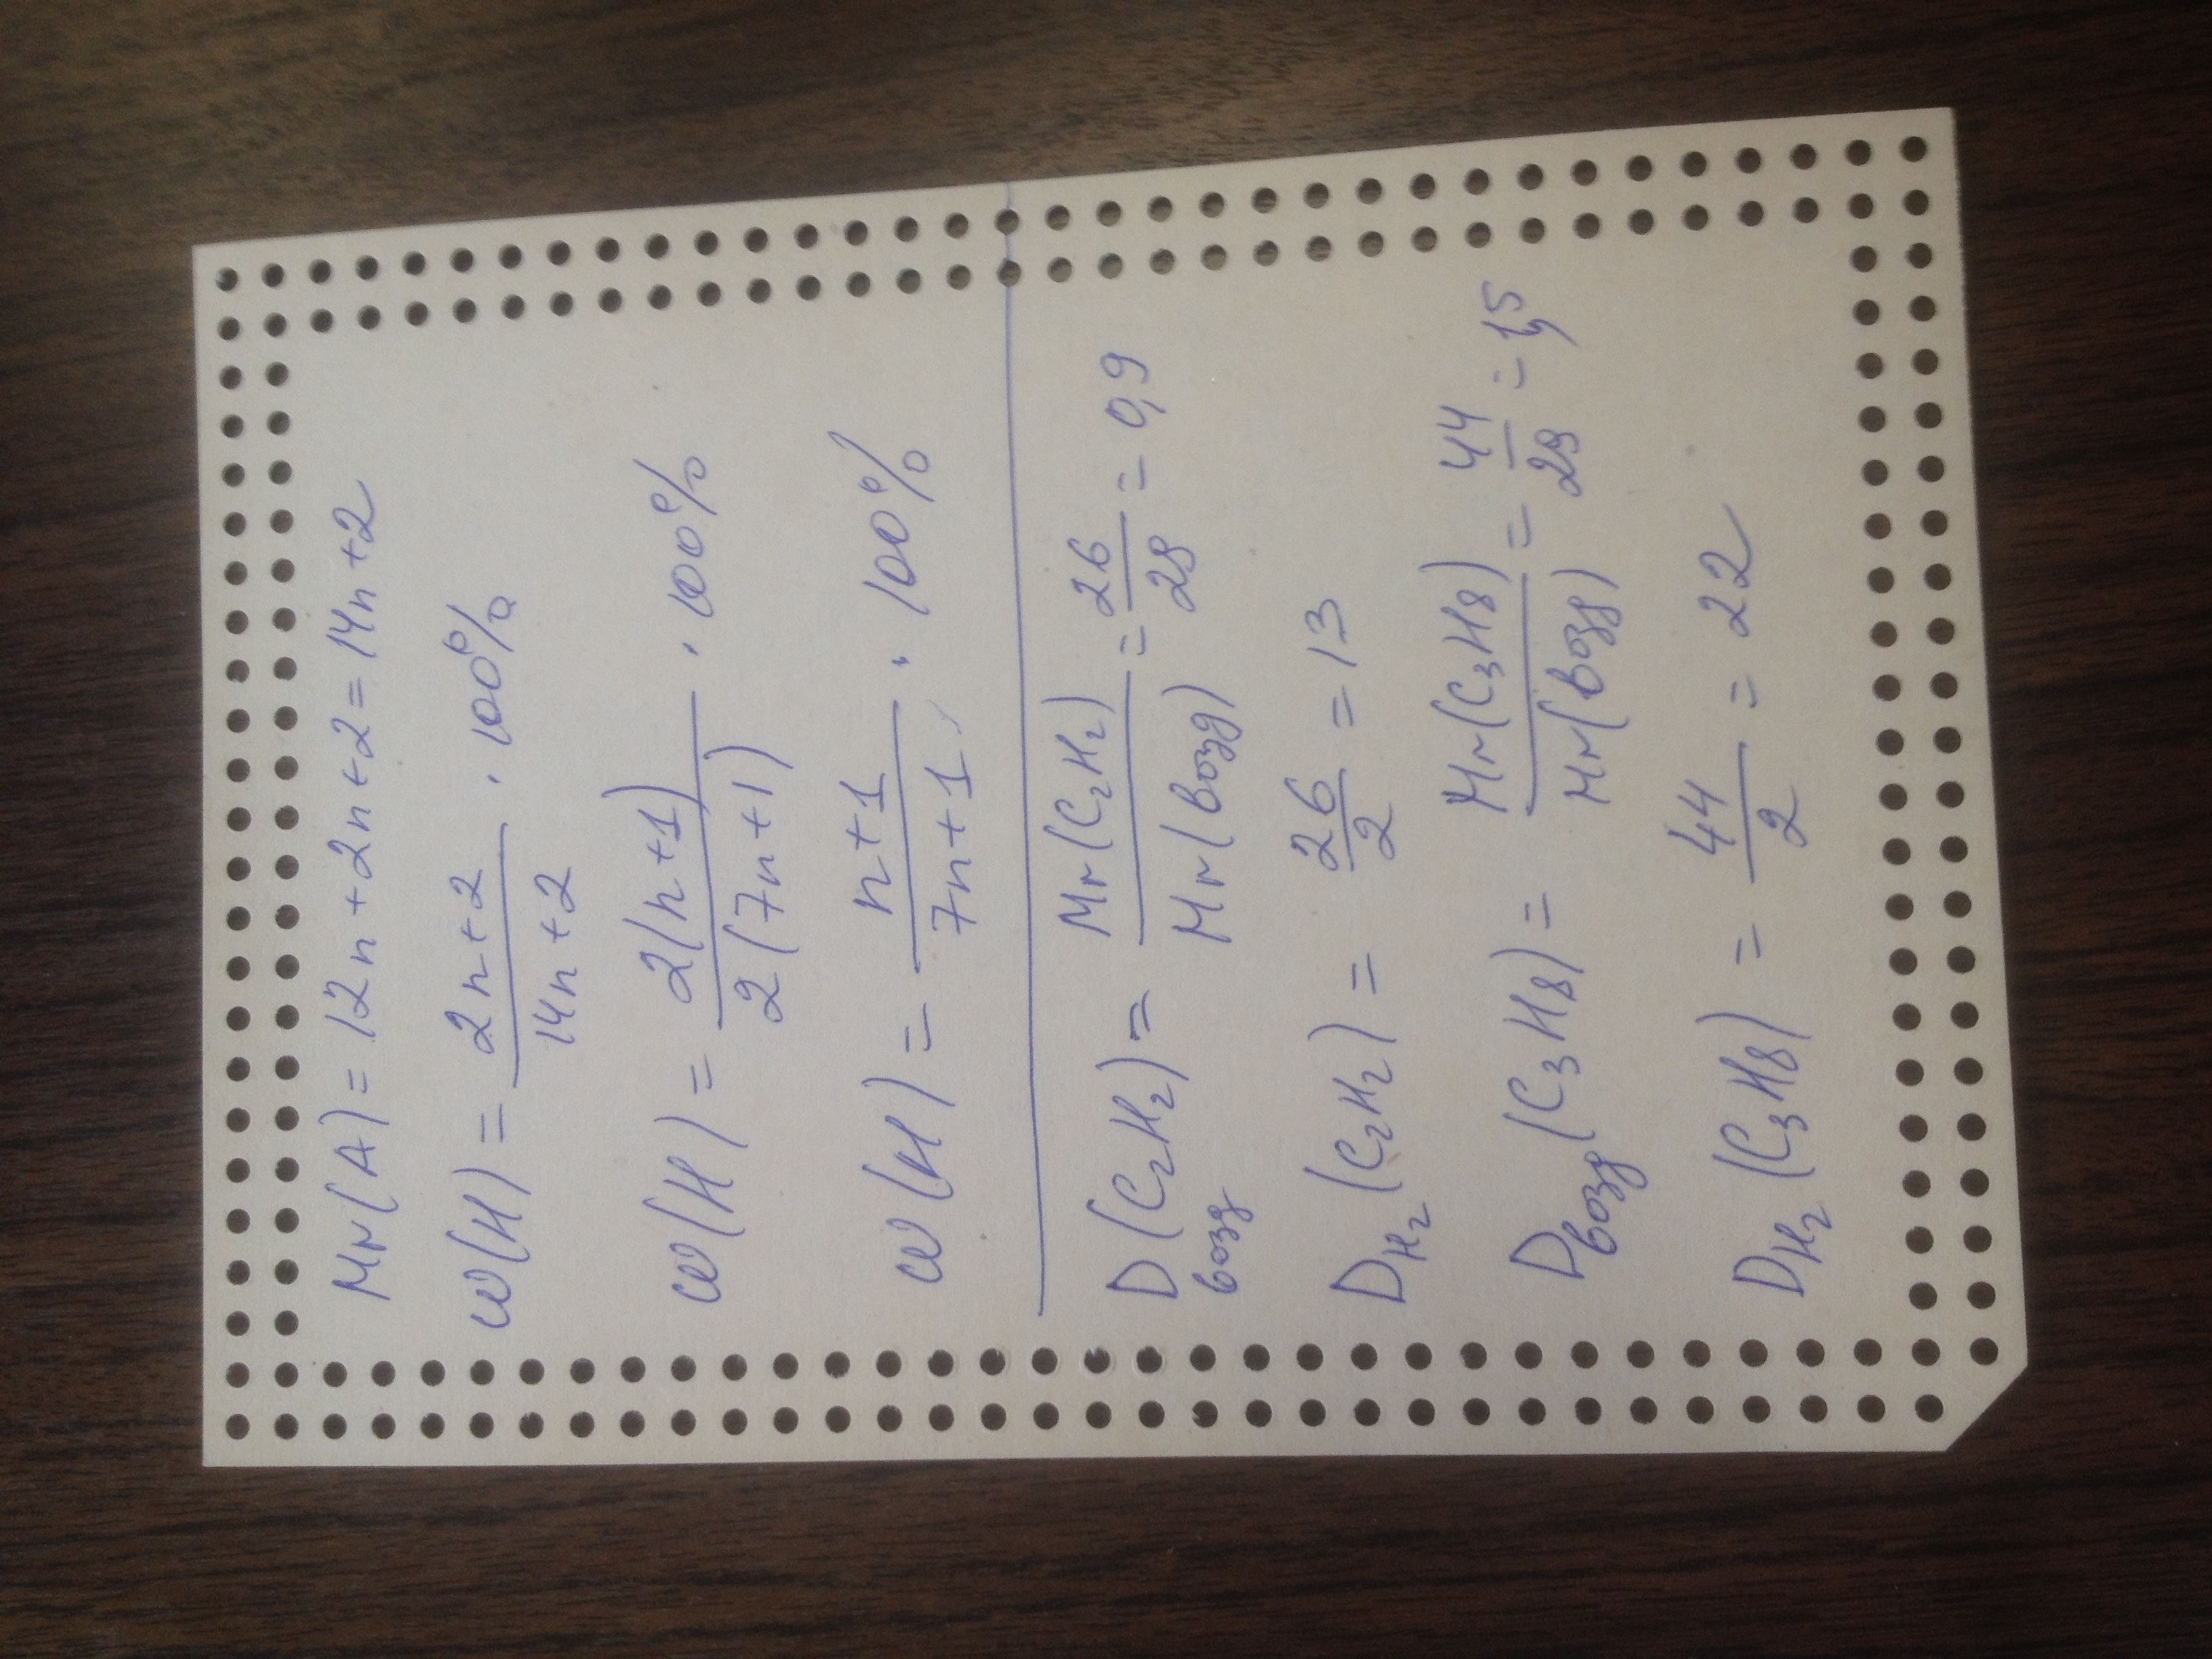 Mr(A) = 12n + 2n + 2 = 14n + 2
ω(H) = (2n+2)/(14n+2) · 100%
ω(H) = 2(n+1)/2(7n+1) · 100%
ω(H) = (n+1)/(7n+1) · 100%
D возд (C₂H₂) = Mr(C₂H₂)/Mr(возд) = 26/29 = 0,9
D H₂ (C₂H₂) = 26/2 = 13
D возд (C₃H₈) = Mr(C₃H₈)/Mr(возд) = 44/29 = 1,5
D H₂ (C₃H₈) = 44/2 = 22